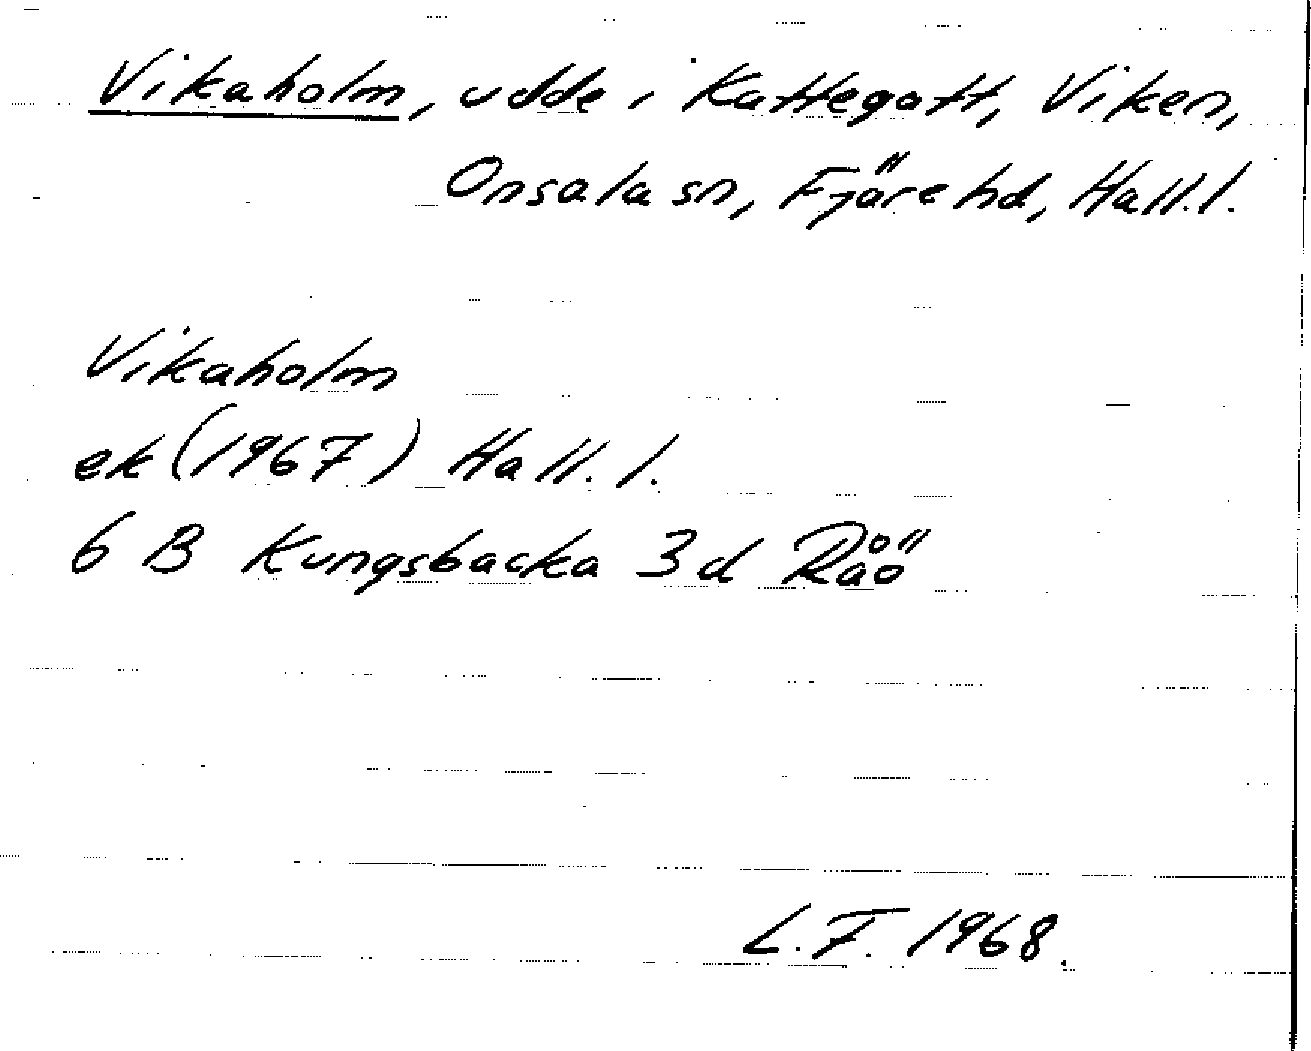 Vikaholm, udde i Kattegatt, Viken,
Onsala sn, Fjäre hd, Hall.l.
Vikaholm
ek (1967) Hall.l.
6 B Kungsbacka 3d Råö
L.F. 1968.